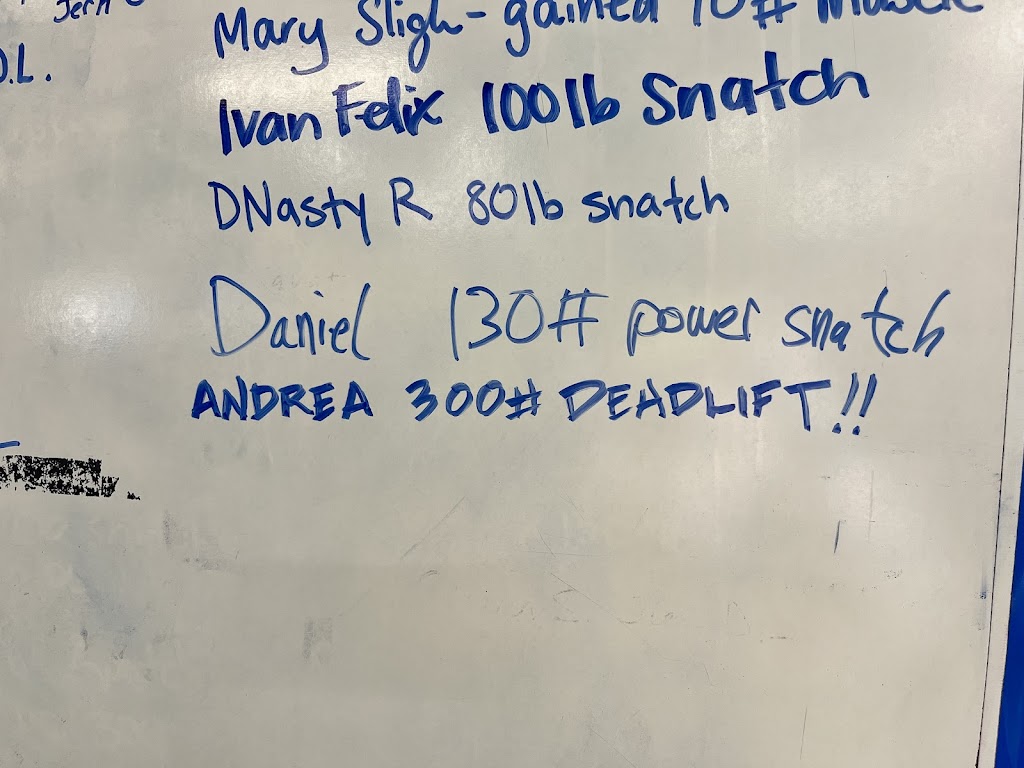 Jerk
D.L.
Mary Sligh - gained 10# muscle
Ivan Felix 100lb Snatch
DNasty R 80lb snatch
Daniel 130# power snatch
ANDREA 300# DEADLIFT!!